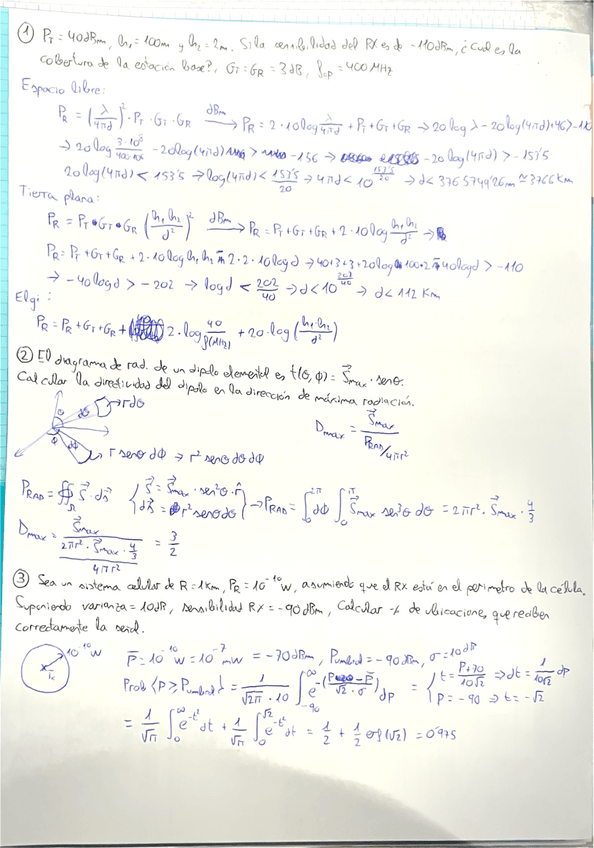 ① P_T = 40dBm, h₁ = 100m y h₂ = 2m. Si la sensibilidad del RX es de -110dBm, ¿cuál es la
cobertura de la estación base?, G_T = G_R = 3dB, f_op = 400 MHz
Espacio libre:
P_R = (λ/4πd)² · P_T · G_T · G_R —dBm→ P_R = 2·10log λ/4πd + P_T + G_T + G_R → 20log λ - 20log(4πd) + 46 > -110
→ 20log - 20log(4πd) > -156 → -20log(4πd) > -153'5
20log(4πd) < 153'5 → log(4πd) < 153'5/20 → 4πd < 10^(153'5/20) → d < 3765749'26m ≈ 3766 Km
Tierra plana:
P_R = P_T · G_T · G_R (h₁h₂/d²)² —dBm→ P_R = P_T + G_T + G_R + 2·10log h₁h₂/d² →
P_R = P_T + G_T + G_R + 2·10log h₁h₂ - 2·2·10logd → 40+3+3+20log 100·2 - 40logd > -110
→ -40logd > -202 → logd < 202/40 → d < 10^(202/40) → d < 112 Km
Elgi:
P_R = P_R + G_T + G_R + 2·log 40/f(MHz) + 20·log(h₁·h₂/d²)
② El diagrama de rad. de un dipolo elemental es t(θ,ϕ) = S⃗max · senθ.
Calcular la directividad del dipolo en la dirección de máxima radiación.
rdθ
θ dθ
Dmax = S⃗max / (P_RAD/4πr²)
ϕ dϕ
r senθ dϕ → r² senθ dθ dϕ
P_RAD = ∯ S⃗ · ds⃗ { S⃗ = S⃗max · sen²θ · r̂
ds⃗ = r² senθ dθ } → P_RAD = ∫₀^2π dϕ ∫₀^π S⃗max sen³θ dθ = 2πr² · S⃗max · 4/3
Dmax = S⃗max / (2πr² · S⃗max · 4/3 / 4πr²) = 3/2
③ Sea un sistema celular de R = 1Km, P_R = 10⁻¹⁰ W, asumiendo que el RX está en el perímetro de la célula.
Suponiendo varianza = 10dB, sensibilidad RX = -90dBm, Calcular % de ubicaciones que reciben
correctamente la señal.
10⁻¹⁰ W
P̄ = 10⁻¹⁰ W = 10⁻⁷ mW = -70dBm, Pumbral = -90dBm, σ = 10dB
Prob{P ≥ Pumbral} = 1/(√2π · 10) ∫₋₉₀^∞ e^-(P - P̄/√2·σ)² dp = { t = P+70/10√2 ⇒ dt = 1/10√2 dp
P = -90 ⇒ t = -√2
= 1/√π ∫₀^∞ e^-t² dt + 1/√π ∫₀^√2 e^-t² dt = 1/2 + 1/2 erf(√2) = 0'975